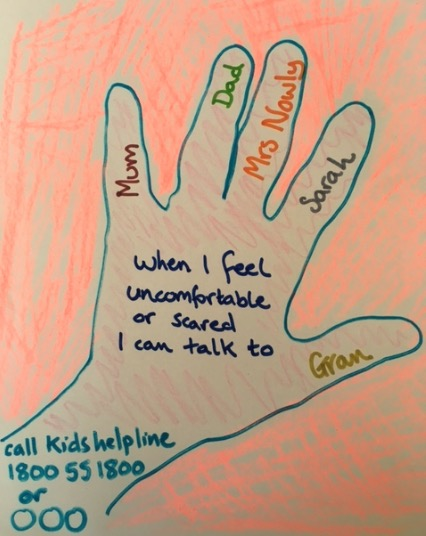 Mum
Dad
Mrs Nowly
Sarah
Gran
When I feel
uncomfortable
or scared
I can talk to
call Kids helpline
1800 55 1800
or
000